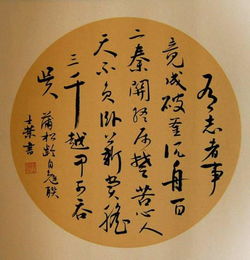 有志者事
竟成破釜沉舟百
二秦關終屬楚苦心人
天不負臥薪嘗膽
三千越甲可吞
吳 蒲松齡自勉聯
書